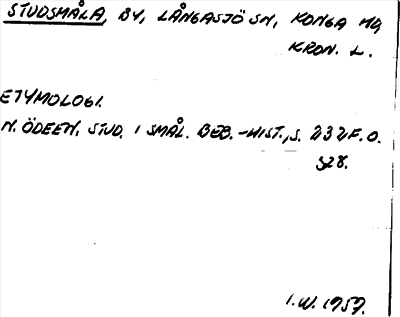 STUDSMÅLA, BY, LÅNGASJÖ SN, KONGA HD,
KRON. L.
ETYMOLOGI.
N. ÖDEEN, STUD. I SMÅL. BEB.-HIST., S. 232 F. O.
328.
I.W. 1959.